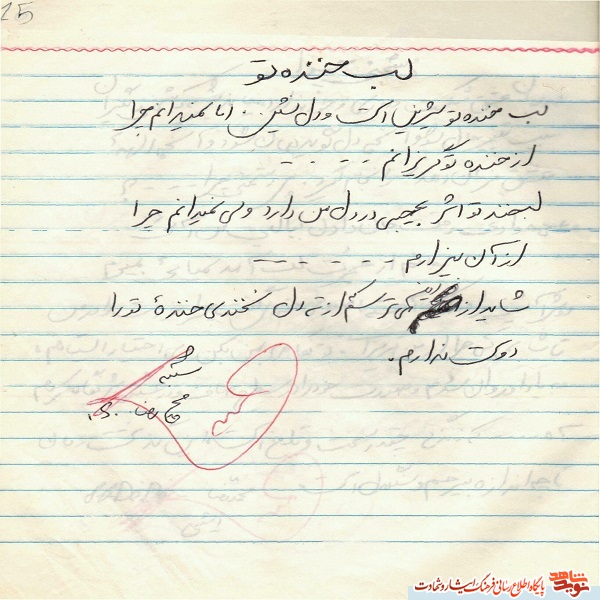 25
لب خنده تو
لب خنده تو شیرین است و دل نشین .. اما نمیدانم چرا
از خنده تو گریزانم - - - - -
لبخند تو اثر عجیبی در دل من دارد ولی نمیدانم چرا
از آن بیزارم - - - - - -
شاید از اینکه می ترسم از ته دل نخندی خنده تو را
دوست ندارم.
شنبه
نوید شاهد
پایگاه اطلاع رسانی فرهنگ ایثار و شهادت